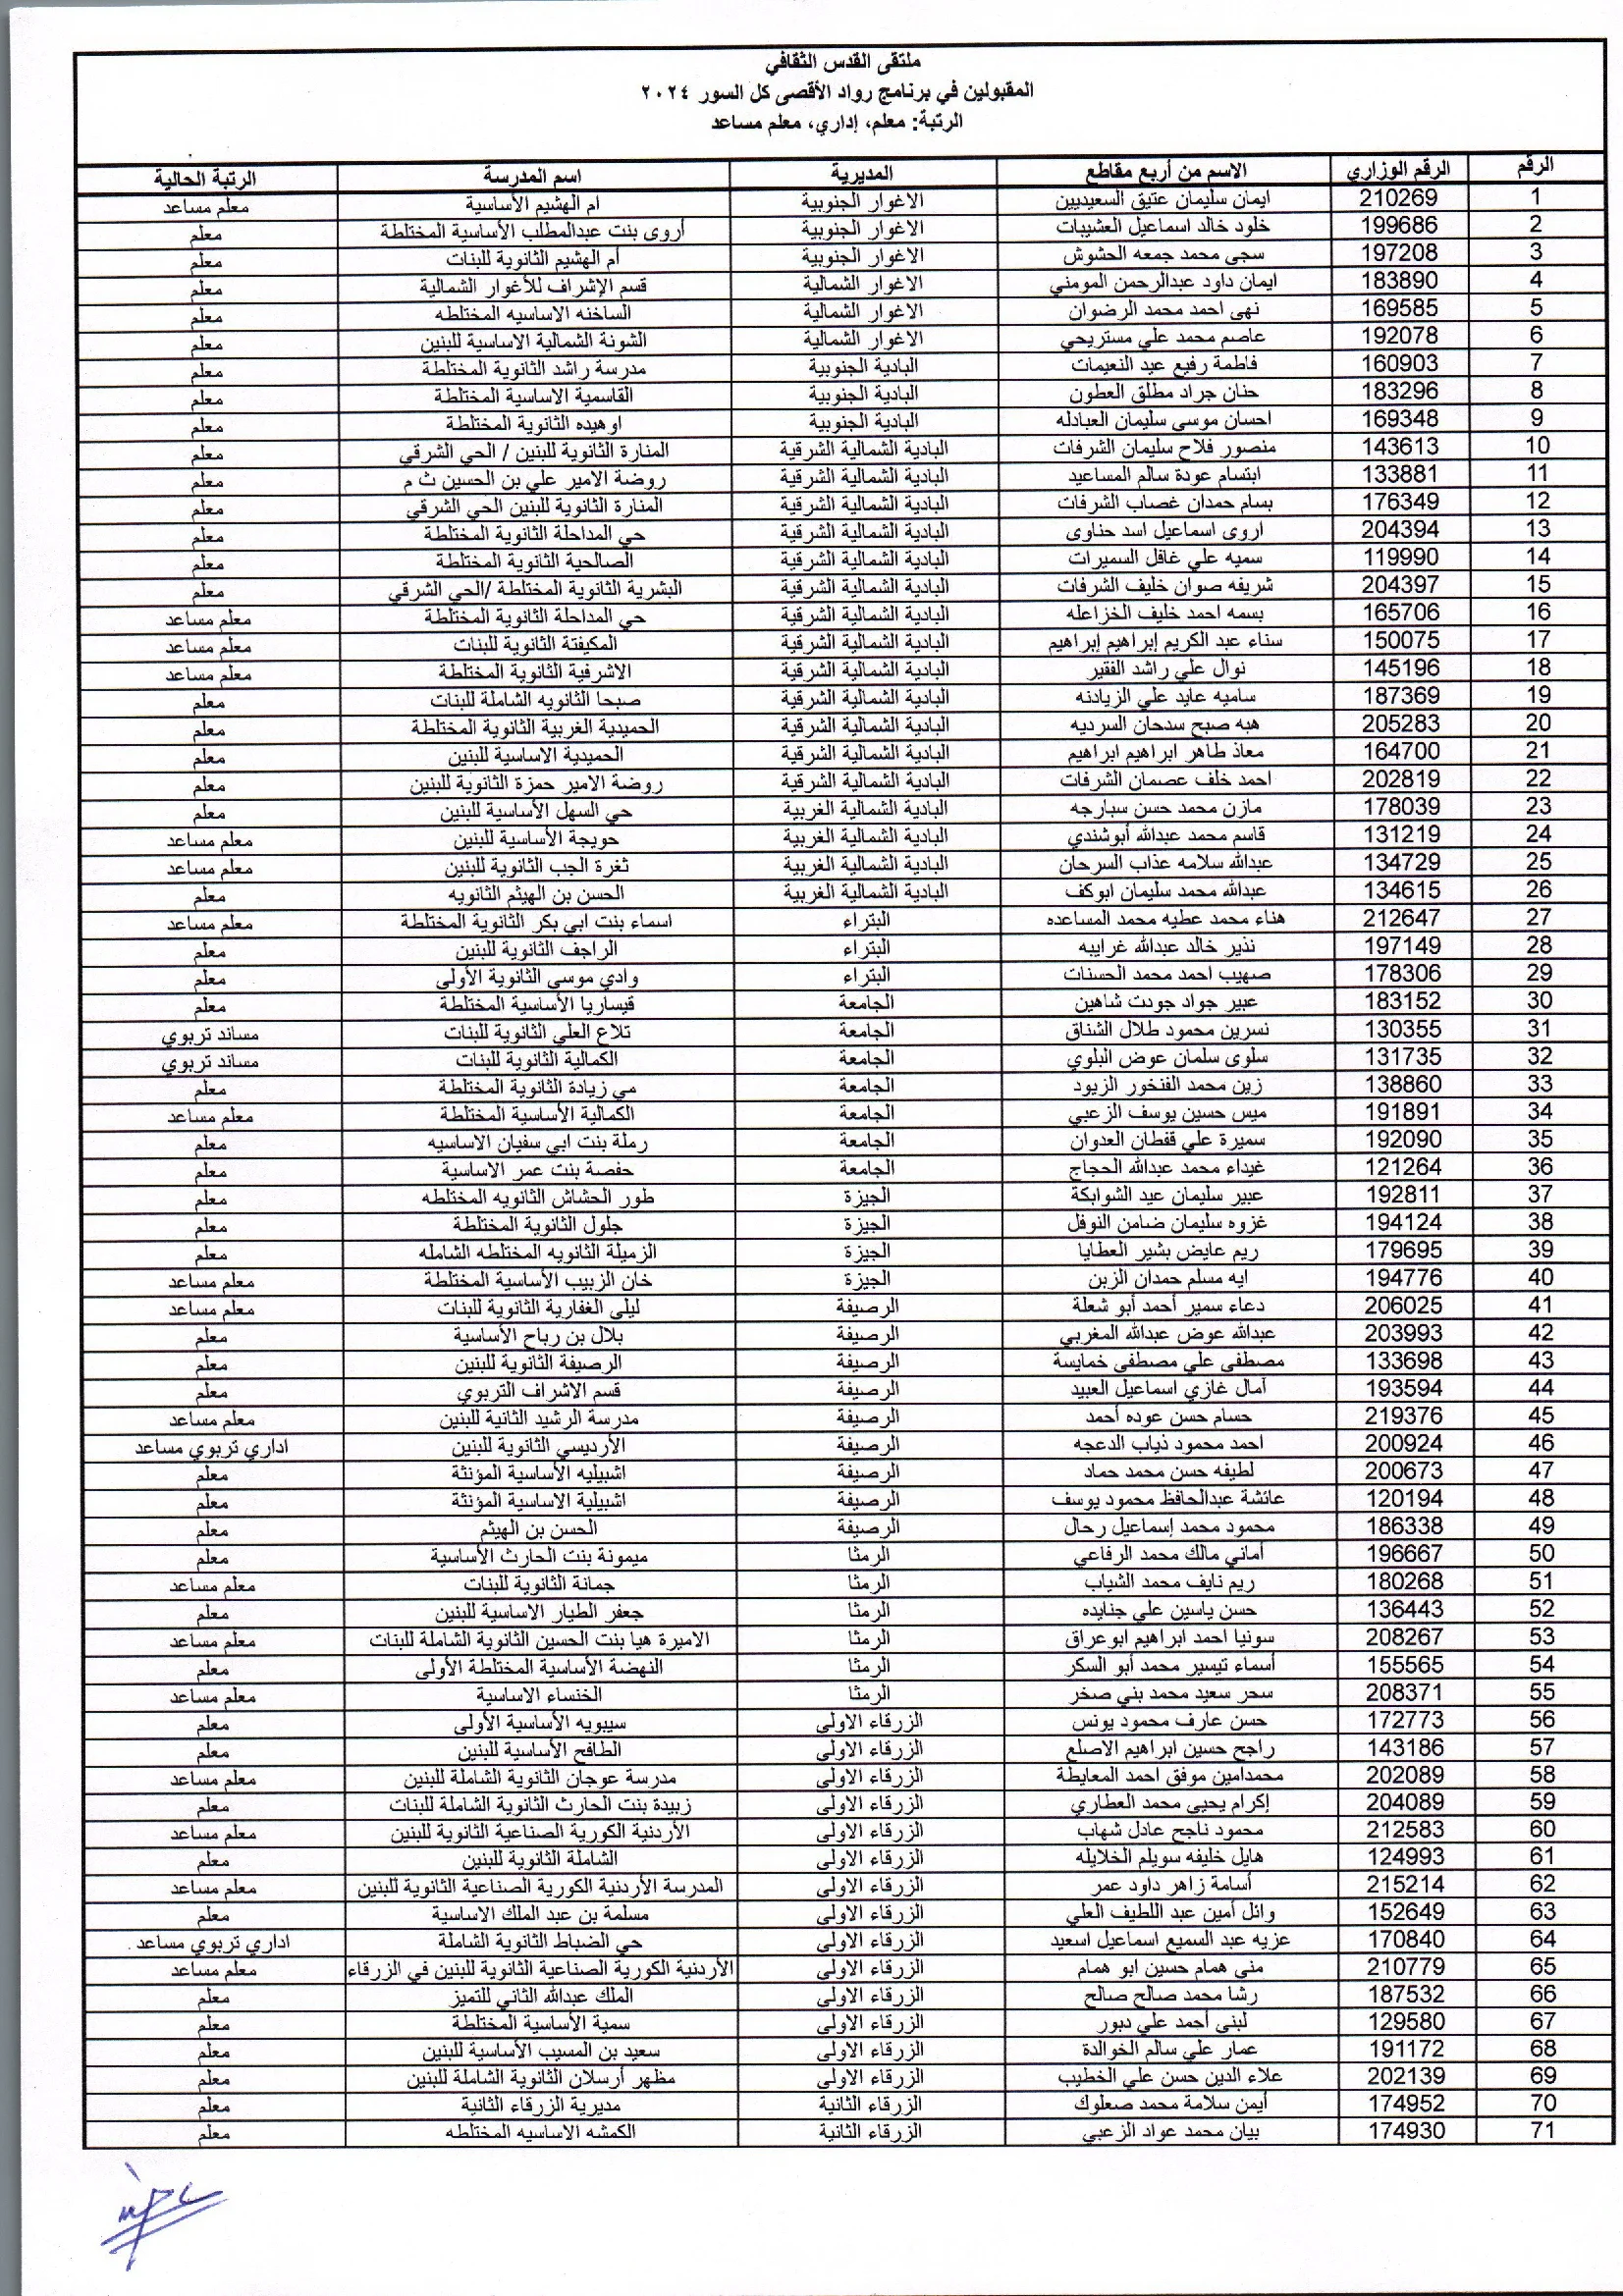 ملتقى القدس الثقافي
المقبولين في برنامج رواد الأقصى كل السور ٢٠٢٤
الرتبة: معلم، إداري، معلم مساعد
الرقم الرقم الوزاري الاسم من أربع مقاطع المديرية اسم المدرسة الرتبة الحالية
1 210269 ايمان سليمان عتيق السعيديين الاغوار الجنوبية ام الهشيم الأساسية معلم مساعد
2 199686 خلود خالد اسماعيل العشيبات الاغوار الجنوبية أروى بنت عبدالمطلب الأساسية المختلطة معلم
3 197208 سجى محمد جمعه الحشوش الاغوار الجنوبية أم الهشيم الثانوية للبنات معلم
4 183890 ايمان داود عبدالرحمن المومني الاغوار الشمالية قسم الإشراف للأغوار الشمالية معلم
5 169585 نهى احمد محمد الرضوان الاغوار الشمالية الساخنه الاساسيه المختلطه معلم
6 192078 عاصم محمد علي مستريحي الاغوار الشمالية الشونة الشمالية الاساسية للبنين معلم
7 160903 فاطمة رفيع عيد النعيمات البادية الجنوبية مدرسة راشد الثانوية المختلطة معلم
8 183296 حنان جراد مطلق العطون البادية الجنوبية القاسمية الاساسية المختلطة معلم
9 169348 احسان موسى سليمان العبادله البادية الجنوبية اوهيده الثانوية المختلطة معلم
10 143613 منصور فلاح سليمان الشرفات البادية الشمالية الشرقية المنارة الثانوية للبنين / الحي الشرقي معلم
11 133881 ابتسام عودة سالم المساعيد البادية الشمالية الشرقية روضة الامير علي بن الحسين ث م معلم
12 176349 بسام حمدان غصاب الشرفات البادية الشمالية الشرقية المنارة الثانوية للبنين الحي الشرقي معلم
13 204394 اروى اسماعيل اسد حناوى البادية الشمالية الشرقية حي المداحلة الثانوية المختلطة معلم
14 119990 سميه علي غافل السميرات البادية الشمالية الشرقية الصالحية الثانوية المختلطة معلم
15 204397 شريفه صوان خليف الشرفات البادية الشمالية الشرقية البشرية الثانوية المختلطة /الحي الشرقي معلم
16 165706 بسمه احمد خليف الخزاعله البادية الشمالية الشرقية حي المداحلة الثانوية المختلطة معلم مساعد
17 150075 سناء عبد الكريم إبراهيم إبراهيم البادية الشمالية الشرقية المكيفتة الثانوية للبنات معلم مساعد
18 145196 نوال علي راشد الفقير البادية الشمالية الشرقية الاشرفية الثانوية المختلطة معلم مساعد
19 187369 ساميه عايد علي الزيادنه البادية الشمالية الشرقية صبحا الثانويه الشاملة للبنات معلم
20 205283 هبه صبح سدحان السرديه البادية الشمالية الشرقية الحميدية الغربية الثانوية المختلطة معلم
21 164700 معاذ طاهر ابراهيم ابراهيم البادية الشمالية الشرقية الحميدية الاساسية للبنين معلم
22 202819 احمد خلف عصمان الشرفات البادية الشمالية الشرقية روضة الامير حمزة الثانوية للبنين معلم
23 178039 مازن محمد حسن سبارجه البادية الشمالية الغربية حي السهل الأساسية للبنين معلم
24 131219 قاسم محمد عبدالله أبوشندي البادية الشمالية الغربية حويجة الأساسية للبنين معلم مساعد
25 134729 عبدالله سلامه عذاب السرحان البادية الشمالية الغربية ثغرة الجب الثانوية للبنين معلم مساعد
26 134615 عبدالله محمد سليمان ابوكف البادية الشمالية الغربية الحسن بن الهيثم الثانويه معلم
27 212647 هناء محمد عطيه محمد المساعده البتراء اسماء بنت ابي بكر الثانوية المختلطة معلم مساعد
28 197149 نذير خالد عبدالله غرايبه البتراء الراجف الثانوية للبنين معلم
29 178306 صهيب احمد محمد الحسنات البتراء وادي موسى الثانوية الأولى معلم
30 183152 عبير جواد جودت شاهين الجامعة قيساريا الأساسية المختلطة معلم
31 130355 نسرين محمود طلال الشناق الجامعة تلاع العلي الثانوية للبنات مساند تربوي
32 131735 سلوى سلمان عوض البلوي الجامعة الكمالية الثانوية للبنات مساند تربوي
33 138860 زين محمد الفنخور الزيود الجامعة مي زيادة الثانوية المختلطة معلم
34 191891 ميس حسين يوسف الزعبي الجامعة الكمالية الأساسية المختلطة معلم مساعد
35 192090 سميرة علي قفطان العدوان الجامعة رملة بنت ابي سفيان الاساسيه معلم
36 121264 غيداء محمد عبدالله الحجاج الجامعة حفصة بنت عمر الاساسية معلم
37 192811 عبير سليمان عيد الشوابكة الجيزة طور الحشاش الثانويه المختلطه معلم
38 194124 غزوه سليمان ضامن النوفل الجيزة جلول الثانوية المختلطة معلم
39 179695 ريم عايض بشير العطايا الجيزة الزميلة الثانويه المختلطه الشامله معلم
40 194776 ايه مسلم حمدان الزبن الجيزة خان الزبيب الأساسية المختلطة معلم مساعد
41 206025 دعاء سمير أحمد أبو شعلة الرصيفة ليلى الغفارية الثانوية للبنات معلم مساعد
42 203993 عبدالله عوض عبدالله المغربي الرصيفة بلال بن رباح الأساسية معلم
43 133698 مصطفى علي مصطفى خمايسة الرصيفة الرصيفة الثانوية للبنين معلم
44 193594 آمال غازي اسماعيل العبيد الرصيفة قسم الاشراف التربوي معلم
45 219376 حسام حسن عوده أحمد الرصيفة مدرسة الرشيد الثانية للبنين معلم مساعد
46 200924 احمد محمود ذياب الدعجه الرصيفة الأرديسي الثانوية للبنين اداري تربوي مساعد
47 200673 لطيفه حسن محمد حماد الرصيفة اشبيليه الأساسية المؤنثة معلم
48 120194 عائشة عبدالحافظ محمود يوسف الرصيفة اشبيلية الاساسية المؤنثة معلم
49 186338 محمود محمد إسماعيل رحال الرصيفة الحسن بن الهيثم معلم
50 196667 أماني مالك محمد الرفاعي الرمثا ميمونة بنت الحارث الأساسية معلم
51 180268 ريم نايف محمد الشياب الرمثا جمانة الثانوية للبنات معلم مساعد
52 136443 حسن ياسين علي جنايده الرمثا جعفر الطيار الاساسية للبنين معلم
53 208267 سونيا احمد ابراهيم ابوعراق الرمثا الاميرة هيا بنت الحسين الثانوية الشاملة للبنات معلم مساعد
54 155565 أسماء تيسير محمد أبو السكر الرمثا النهضة الأساسية المختلطة الأولى معلم
55 208371 سحر سعيد محمد بني صخر الرمثا الخنساء الاساسية معلم مساعد
56 172773 حسن عارف محمود يونس الزرقاء الاولى سيبويه الأساسية الأولى معلم
57 143186 راجح حسين ابراهيم الاصلع الزرقاء الاولى الطافح الأساسية للبنين معلم
58 202089 محمدامين موفق احمد المعايطة الزرقاء الاولى مدرسة عوجان الثانوية الشاملة للبنين معلم مساعد
59 204089 إكرام يحيى محمد العطاري الزرقاء الاولى زبيدة بنت الحارث الثانوية الشاملة للبنات معلم
60 212583 محمود ناجح عادل شهاب الزرقاء الاولى الأردنية الكورية الصناعية الثانوية للبنين معلم مساعد
61 124993 هايل خليفه سويلم الخلايله الزرقاء الاولى الشاملة الثانوية للبنين معلم
62 215214 أسامة زاهر داود عمر الزرقاء الاولى المدرسة الأردنية الكورية الصناعية الثانوية للبنين معلم مساعد
63 152649 وائل أمين عبد اللطيف العلي الزرقاء الاولى مسلمة بن عبد الملك الاساسية معلم
64 170840 عزيه عبد السميع اسماعيل اسعيد الزرقاء الاولى حي الضباط الثانوية الشاملة اداري تربوي مساعد
65 210779 منى همام حسين ابو همام الزرقاء الاولى الأردنية الكورية الصناعية الثانوية للبنين في الزرقاء معلم مساعد
66 187532 رشا محمد صالح صالح الزرقاء الاولى الملك عبدالله الثاني للتميز معلم
67 129580 لبنى أحمد علي دبور الزرقاء الاولى سمية الأساسية المختلطة معلم
68 191172 عمار علي سالم الخوالدة الزرقاء الاولى سعيد بن المسيب الأساسية للبنين معلم
69 202139 علاء الدين حسن علي الخطيب الزرقاء الاولى مظهر أرسلان الثانوية الشاملة للبنين معلم
70 174952 أيمن سلامة محمد صعلوك الزرقاء الثانية مديرية الزرقاء الثانية معلم
71 174930 بيان محمد عواد الزعبي الزرقاء الثانية الكمشه الاساسيه المختلطه معلم